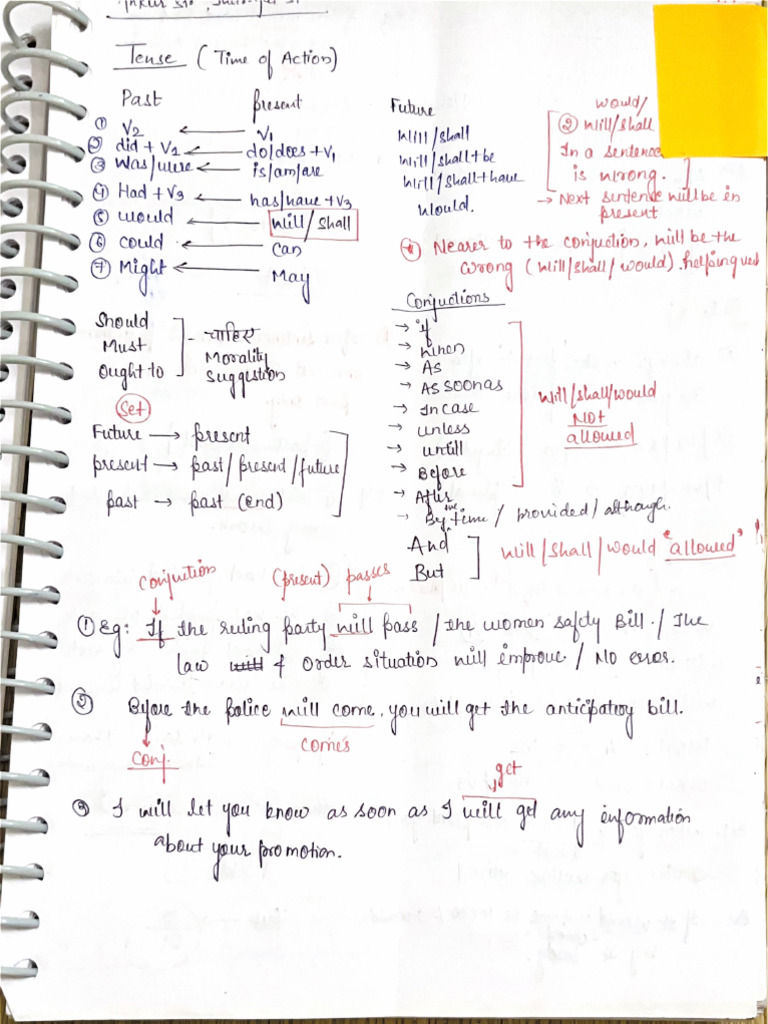 Tense (Time of Action)
Past present Future
① V2 ← V1 Will/shall
② did + V1 ← do/does + V1 Will/shall + be
③ Was/were ← is/am/are Will/shall + have
④ Had + V3 ← has/have + V3 Would.
⑤ would ← will/shall
⑥ could ← can
⑦ Might ← May
would/
② Will/shall
In a sentence
is wrong.
→ Next sentence will be in
present
Nearer to the conjuction, will be the
wrong (will/shall/would). helping verb
Should
Must
Ought to
- चाहिए
Morality
Suggestion
Set
Future → present
present → past/present/future
past → past (end)
Conjuctions
→ if
→ when
→ As
→ As soon as
→ In case
→ unless
→ untill
→ Before
→ After
→ By the time / provided / although.
will/shall/would
NOT
allowed
And
But
will/shall/would "allowed"
conjuction (present) passes
① Eg: If the ruling party will pass / the women safety Bill. / The
law & order situation will improve / No error.
② Before the police will come, you will get the anticipatory bill.
comes
conj.
get
③ I will let you know as soon as I will get any information
about your promotion.